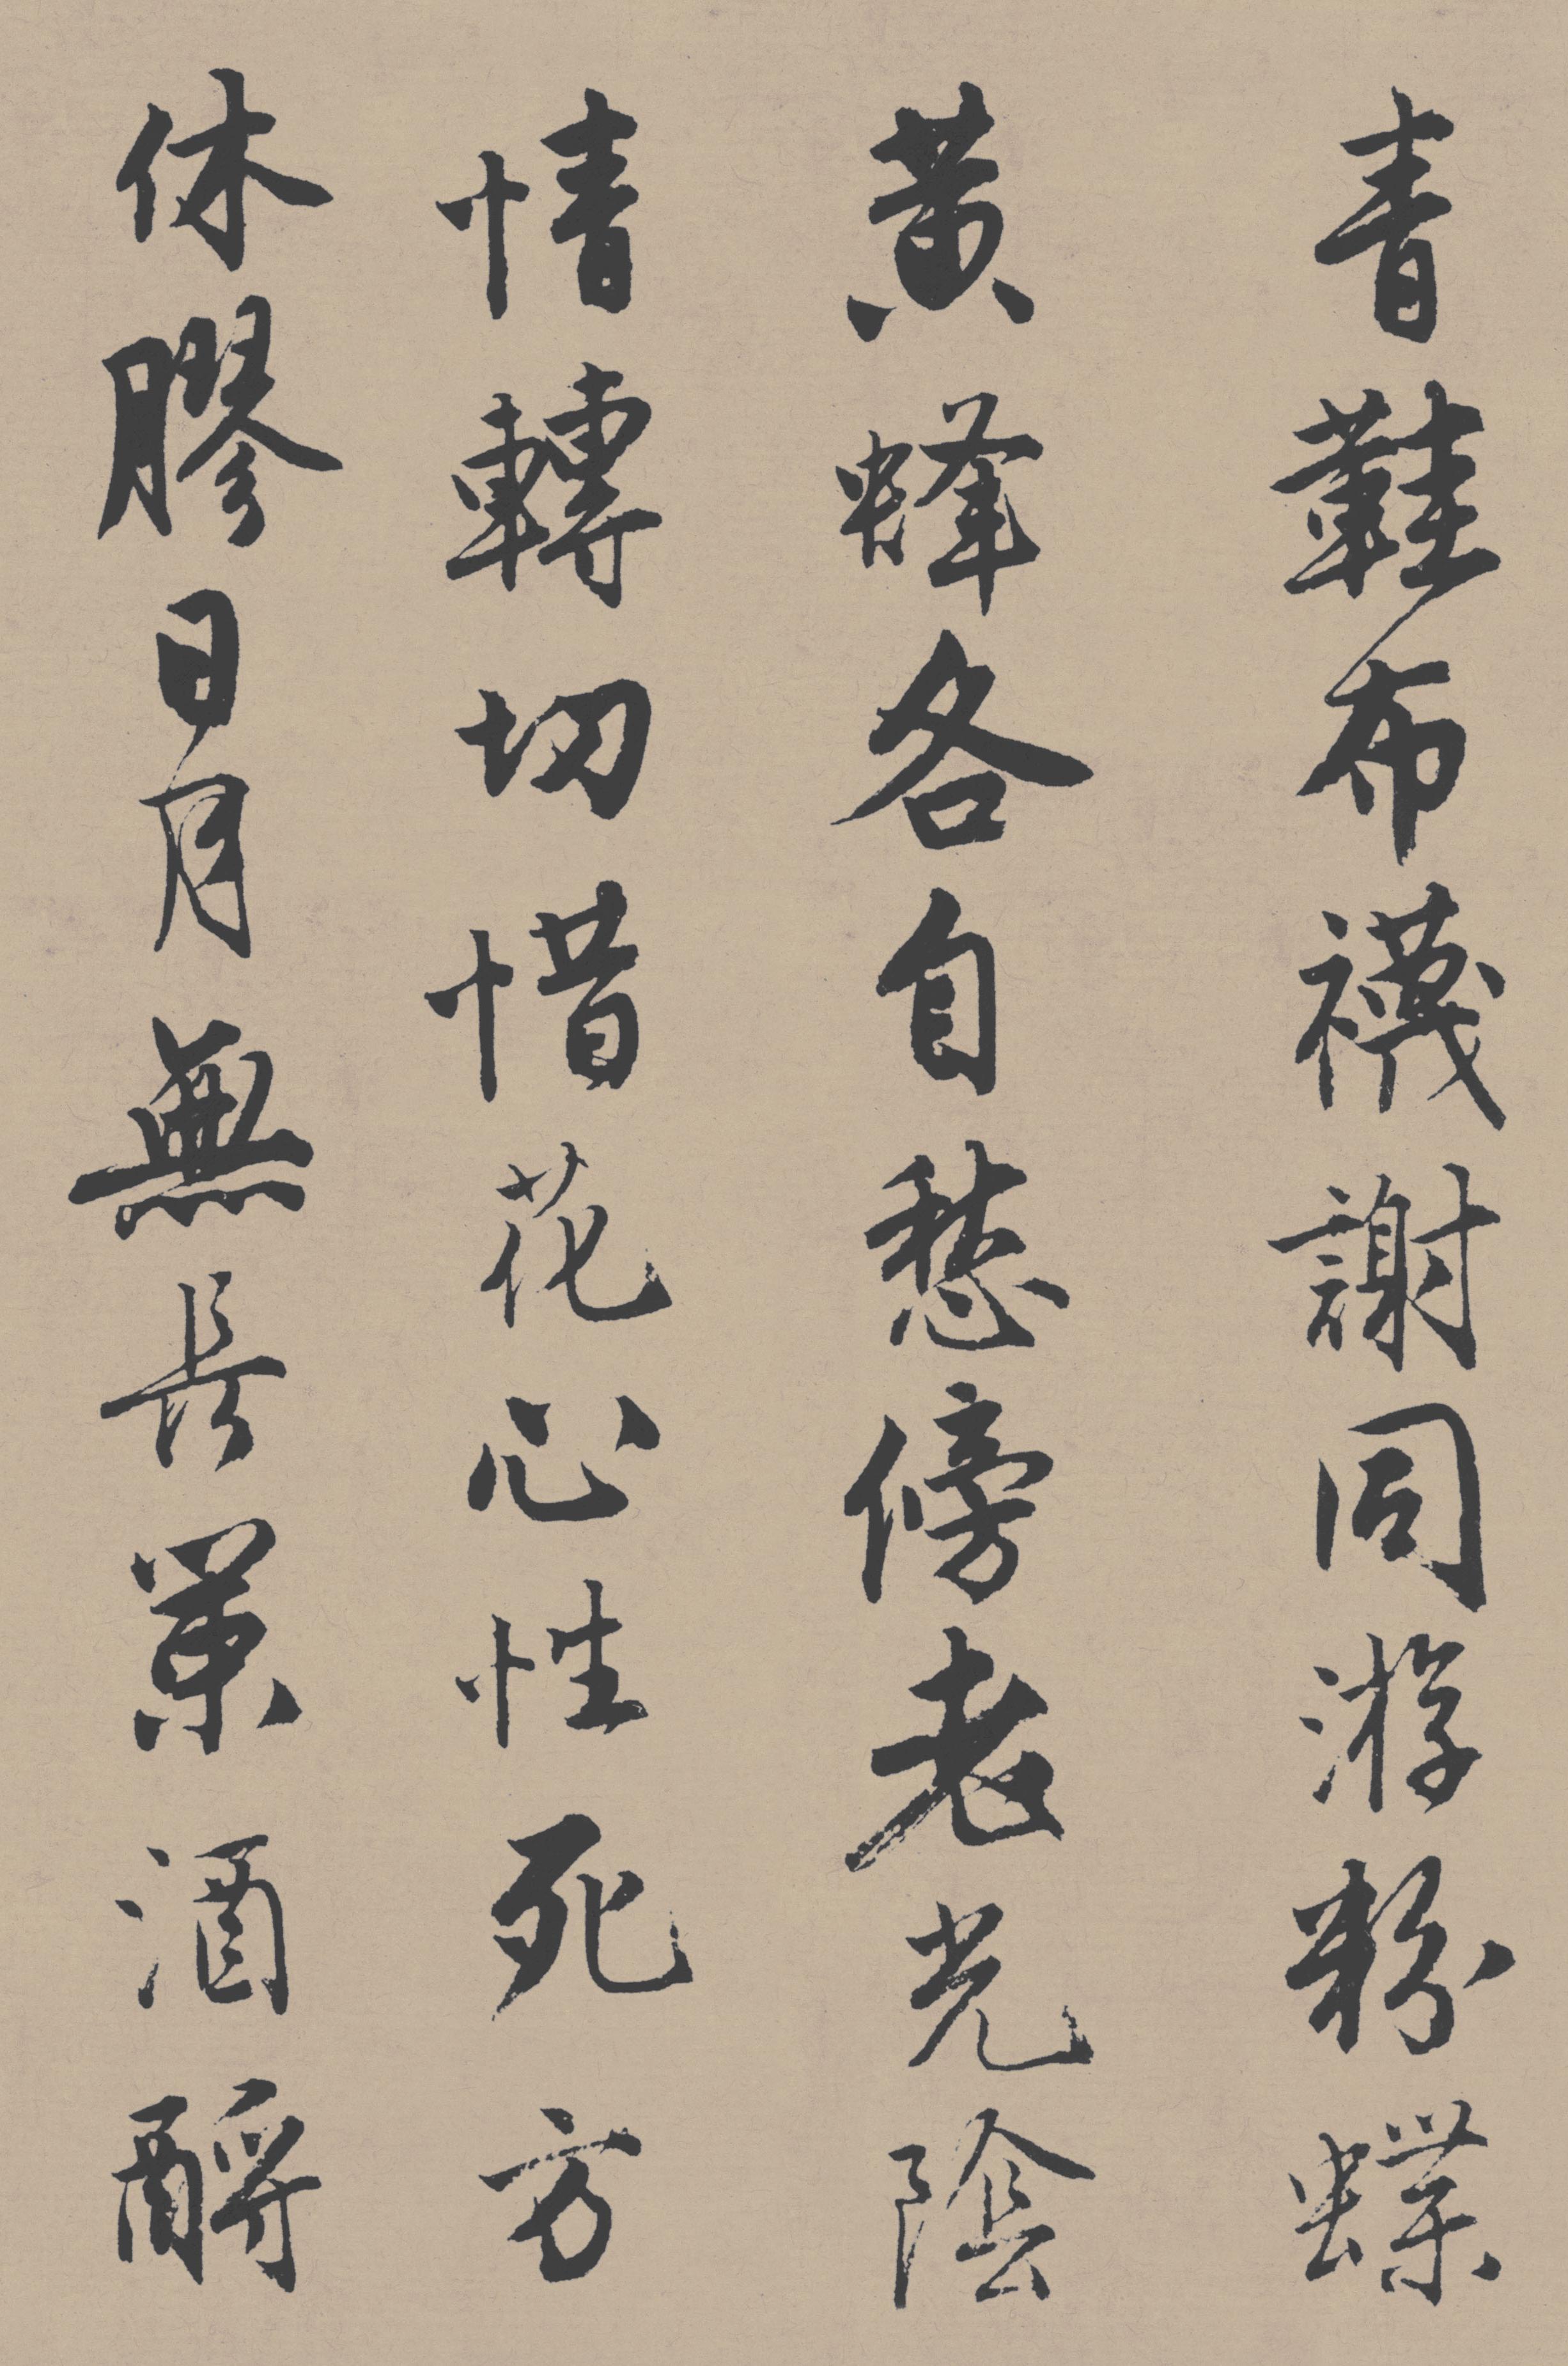 青鞋布襪謝同游粉蝶
黄蜂各自愁傍老光陰
情轉切惜花心性死方
休膠日月無長策酒酹